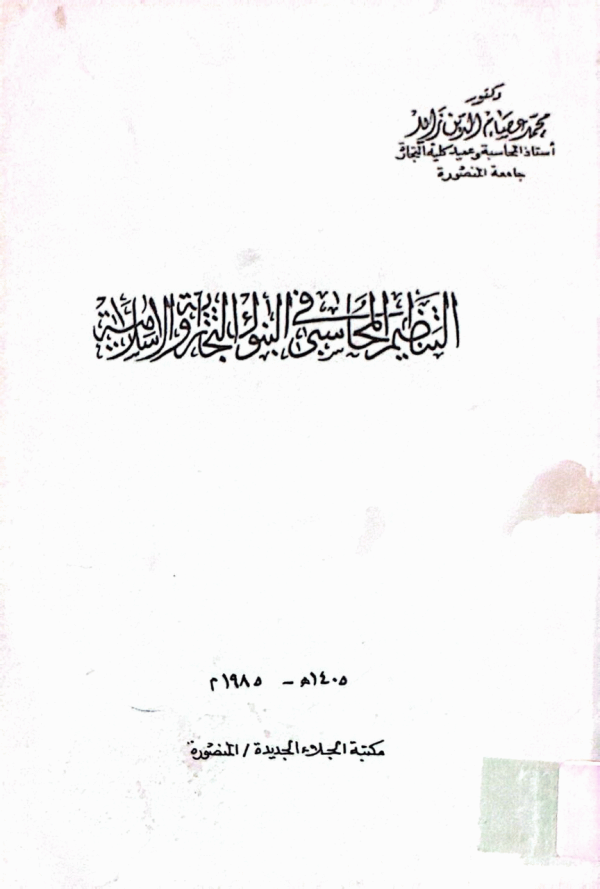 دكتور
محمد عصام الدين زايد
أستاذ المحاسبة وعميد كلية التجارة
جامعة المنصورة
التنظيم المحاسبى فى البنوك التجارية والإسلامية
١٤٠٥ھ - ١٩٨٥م
مكتبة الجلاء الجديدة / المنصورة